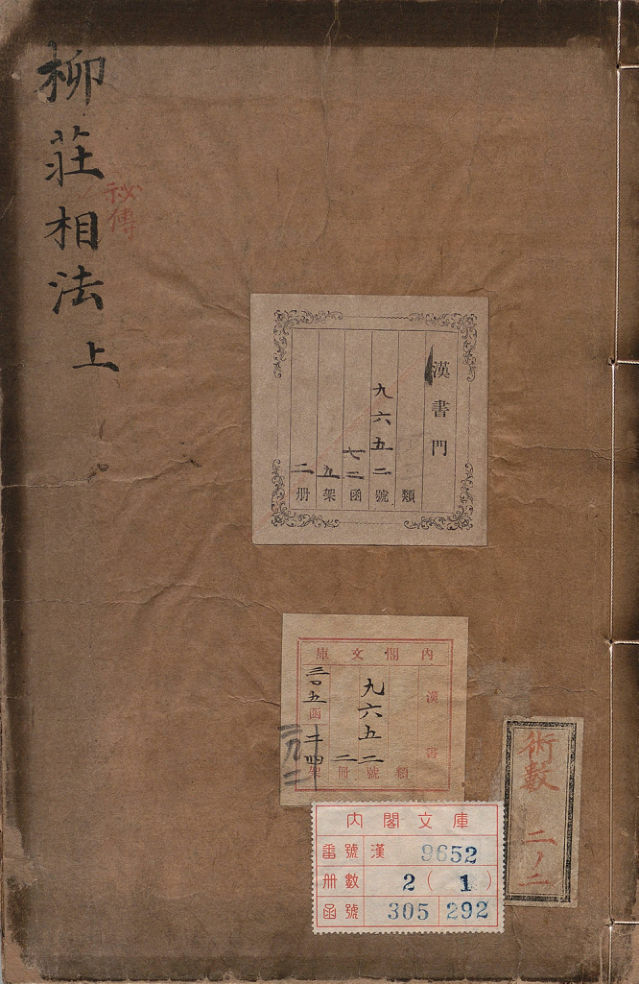 柳莊相法 上
祕傳
漢書門
類
九六五二號
七二函
五架
二册
內閣文庫
漢書
類
九六五二號
二冊
三〇五函
二四架
二九二
術數
二ノ二
內閣文庫
番號 漢 9652
册數 2 (1)
函號 305 292